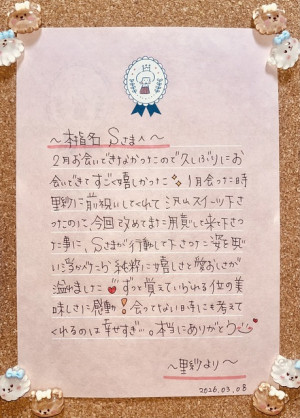 ～本指名 Sさまへ～
2月お会いできなかったので久しぶりにお
会いできて すごく嬉しかった✨ 1月会った時
里紗に前祝いしてくれて 沢山スイーツ下さ
ったのに、今回で改めてまた用意して来て下さっ
た事に、Sさまが行動して下さった姿を思
い浮かべたら 純粋に嬉しさと愛おしさが
溢れました❤ ずっと覚えていられる位の美
味しさに感動！会ってない日にも考えて
くれるのは幸せすぎ…。本当にありがとう
～里紗より～
2026.03.08